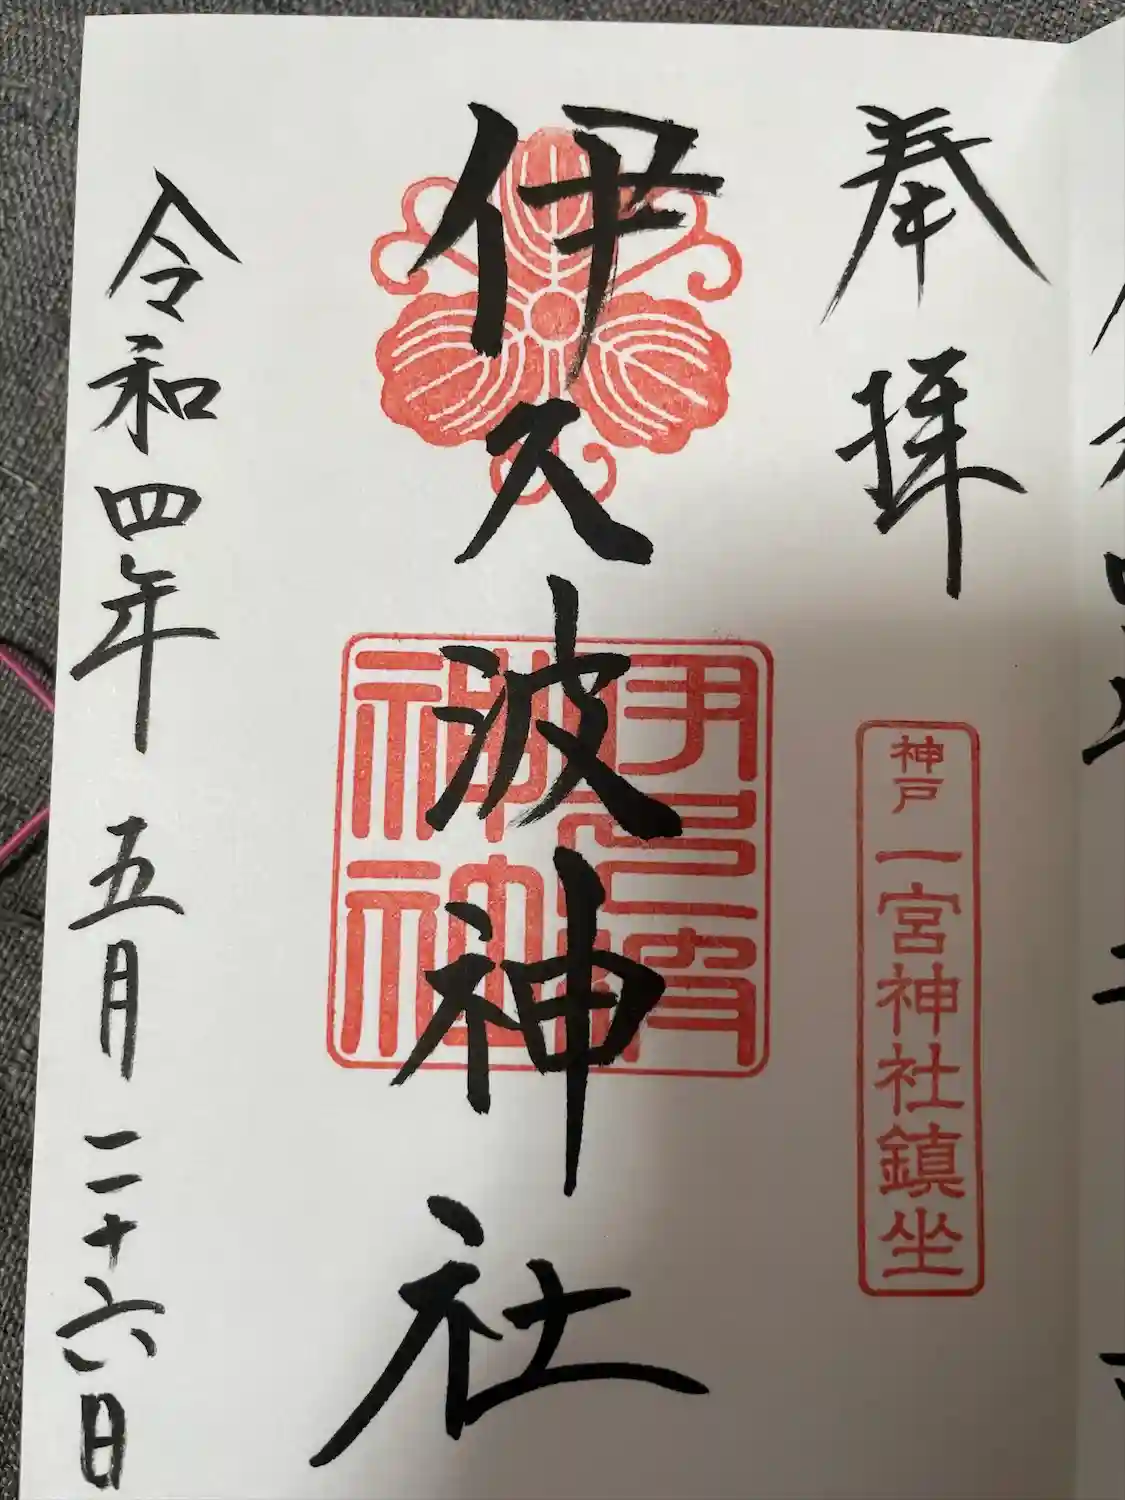 奉拝
神戸一宮神社鎮坐
伊久波神社
伊久波神社
令和四年 五月二十六日